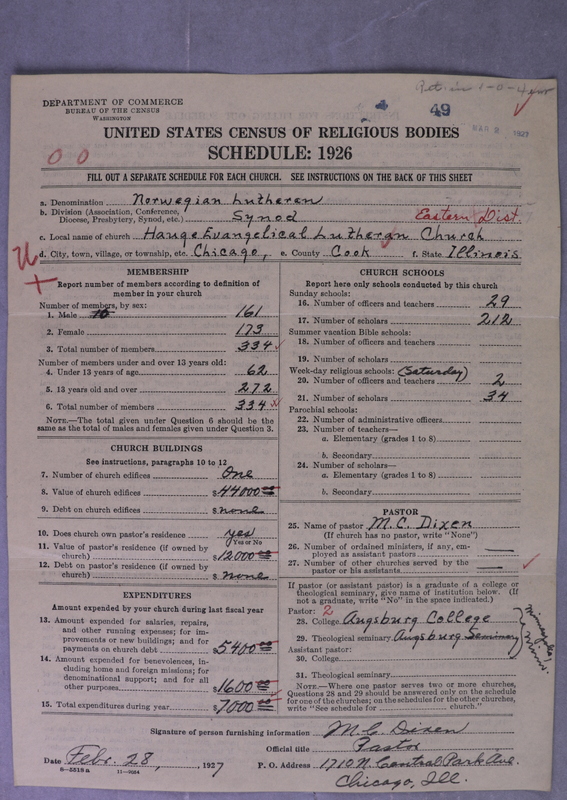 DEPARTMENT OF COMMERCE
BUREAU OF THE CENSUS
WASHINGTON
4 49
MAR 2 1927
UNITED STATES CENSUS OF RELIGIOUS BODIES
SCHEDULE: 1926
0 0
FILL OUT A SEPARATE SCHEDULE FOR EACH CHURCH. SEE INSTRUCTIONS ON THE BACK OF THIS SHEET
a. Denomination Norwegian Lutheren
b. Division (Association, Conference, Diocese, Presbytery, Synod, etc.) Synod Eastern Dist.
c. Local name of church Hauge Evangelical Lutheran Church
d. City, town, village, or township, etc. Chicago, e. County Cook f. State Illinois
MEMBERSHIP
Report number of members according to definition of
member in your church
Number of members, by sex:
1. Male 161
2. Female 173
3. Total number of members 334
Number of members under and over 13 years old:
4. Under 13 years of age 62
5. 13 years old and over 272
6. Total number of members 334
NOTE.—The total given under Question 6 should be
same as the total of males and females given under Question 3.
CHURCH BUILDINGS
See instructions, paragraphs 10 to 12
7. Number of church edifices One
8. Value of church edifices $44000
9. Debt on church edifices $none
10. Does church own pastor's residence yes
Yes or No
11. Value of pastor's residence (if owned by
church) $12000
12. Debt on pastor's residence (if owned by
church) $none
EXPENDITURES
Amount expended by your church during last fiscal year
13. Amount expended for salaries, repairs,
and other running expenses; for im-
provements or new buildings; and for
payments on church debt $5400
14. Amount expended for benevolences, in-
cluding home and foreign missions; for
denominational support; and for all
other purposes $1600
15. Total expenditures during year $7000
CHURCH SCHOOLS
Report here only schools conducted by this church
Sunday schools:
16. Number of officers and teachers 29
17. Number of scholars 212
Summer vacation Bible schools:
18. Number of officers and teachers
19. Number of scholars
Week-day religious schools: (Saturday)
20. Number of officers and teachers 2
21. Number of scholars 34
Parochial schools:
22. Number of administrative officers
23. Number of teachers—
a. Elementary (grades 1 to 8)
b. Secondary
24. Number of scholars—
a. Elementary (grades 1 to 8)
b. Secondary
PASTOR
25. Name of pastor M.C. Dixen
(If church has no pastor, write "None")
26. Number of ordained ministers, if any, em-
ployed as assistant pastors
27. Number of other churches served by the
pastor or his assistants
If pastor (or assistant pastor) is a graduate of a college or
theological seminary, give name of institution below. (If
not a graduate, write "No" in the space indicated.)
Pastor: 2
28. College Augsburg College
29. Theological seminary Augsburg Seminary
Minneapolis, Minn.
Assistant pastor:
30. College
31. Theological seminary
NOTE.—Where one pastor serves two or more churches,
Questions 28 and 29 should be answered only on the schedule
for one of the churches; on the schedules for the other churches,
write "See schedule for church."
Signature of person furnishing information M.C. Dixen
Official title Pastor
Date Febr. 28, 1927 P. O. Address 1710 N. Central Park Ave.
8—5518a 11—9084 Chicago, Ill.